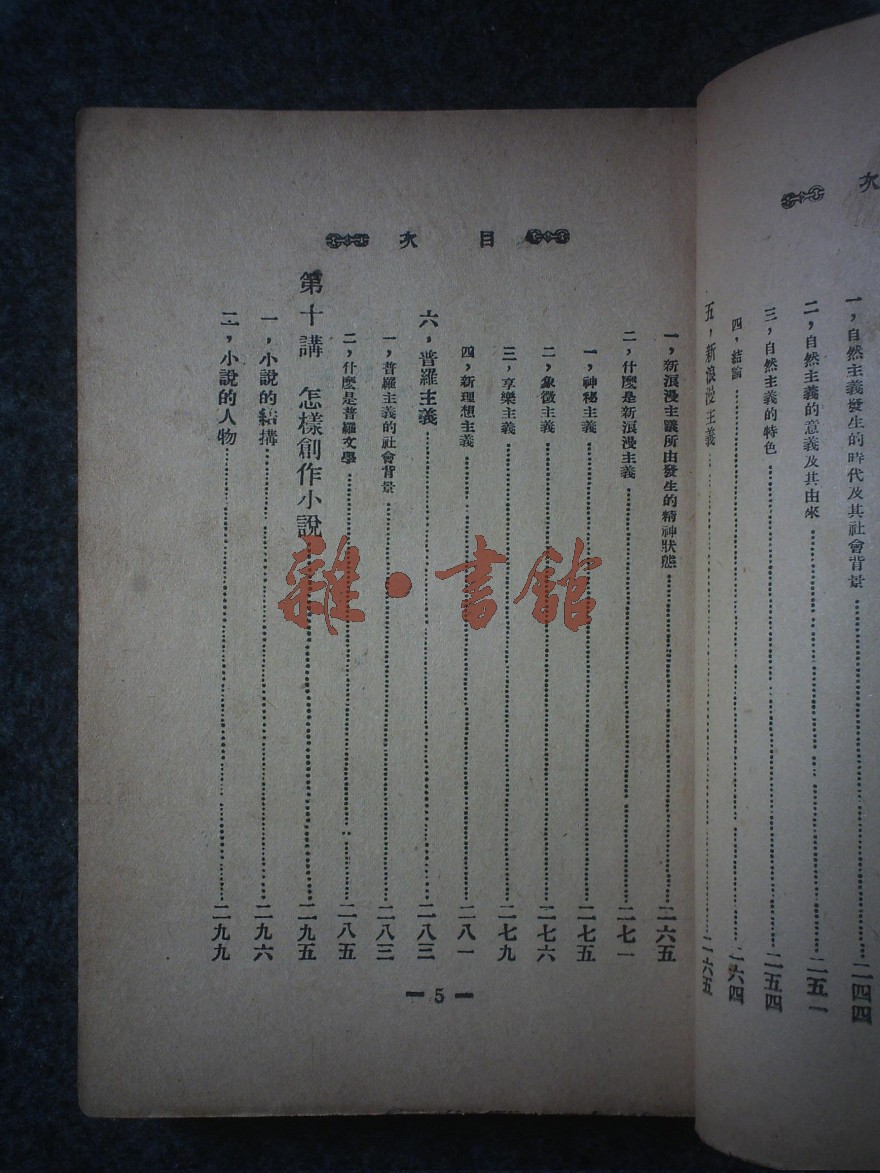 次
一，自然主義發生的時代及其社會背景……二四四
二，自然主義的意義及其由來……二五一
三，自然主義的特色……二五四
四，結論……二六四
五，新浪漫主義……二六五
目次
一，新浪漫主義所由發生的精神狀態……二六五
二，什麼是新浪漫主義……二七一
一，神秘主義……二七五
二，象徵主義……二七六
三，享樂主義……二七九
四，新理想主義……二八一
六，普羅主義……二八三
一，普羅主義的社會背景……二八三
二，什麼是普羅文學……二八五
第十講 怎樣創作小說……二九五
一，小說的結搆……二九六
二，小說的人物……二九九
— 5 —
雜·書館